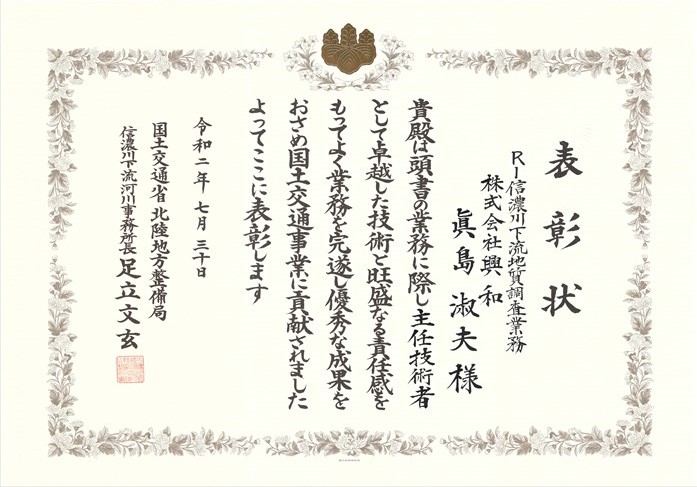 表彰状
R1信濃川下流地質調査業務
株式会社興和
眞島淑夫様
貴殿は頭書の業務に際し主任技術者
として卓越した技術と旺盛なる責任感を
もってよく業務を完遂し優秀な成果を
おさめ国土交通事業に貢献されました
よってここに表彰します
令和二年七月三十日
国土交通省 北陸地方整備局
信濃川下流河川事務所長 足立文玄